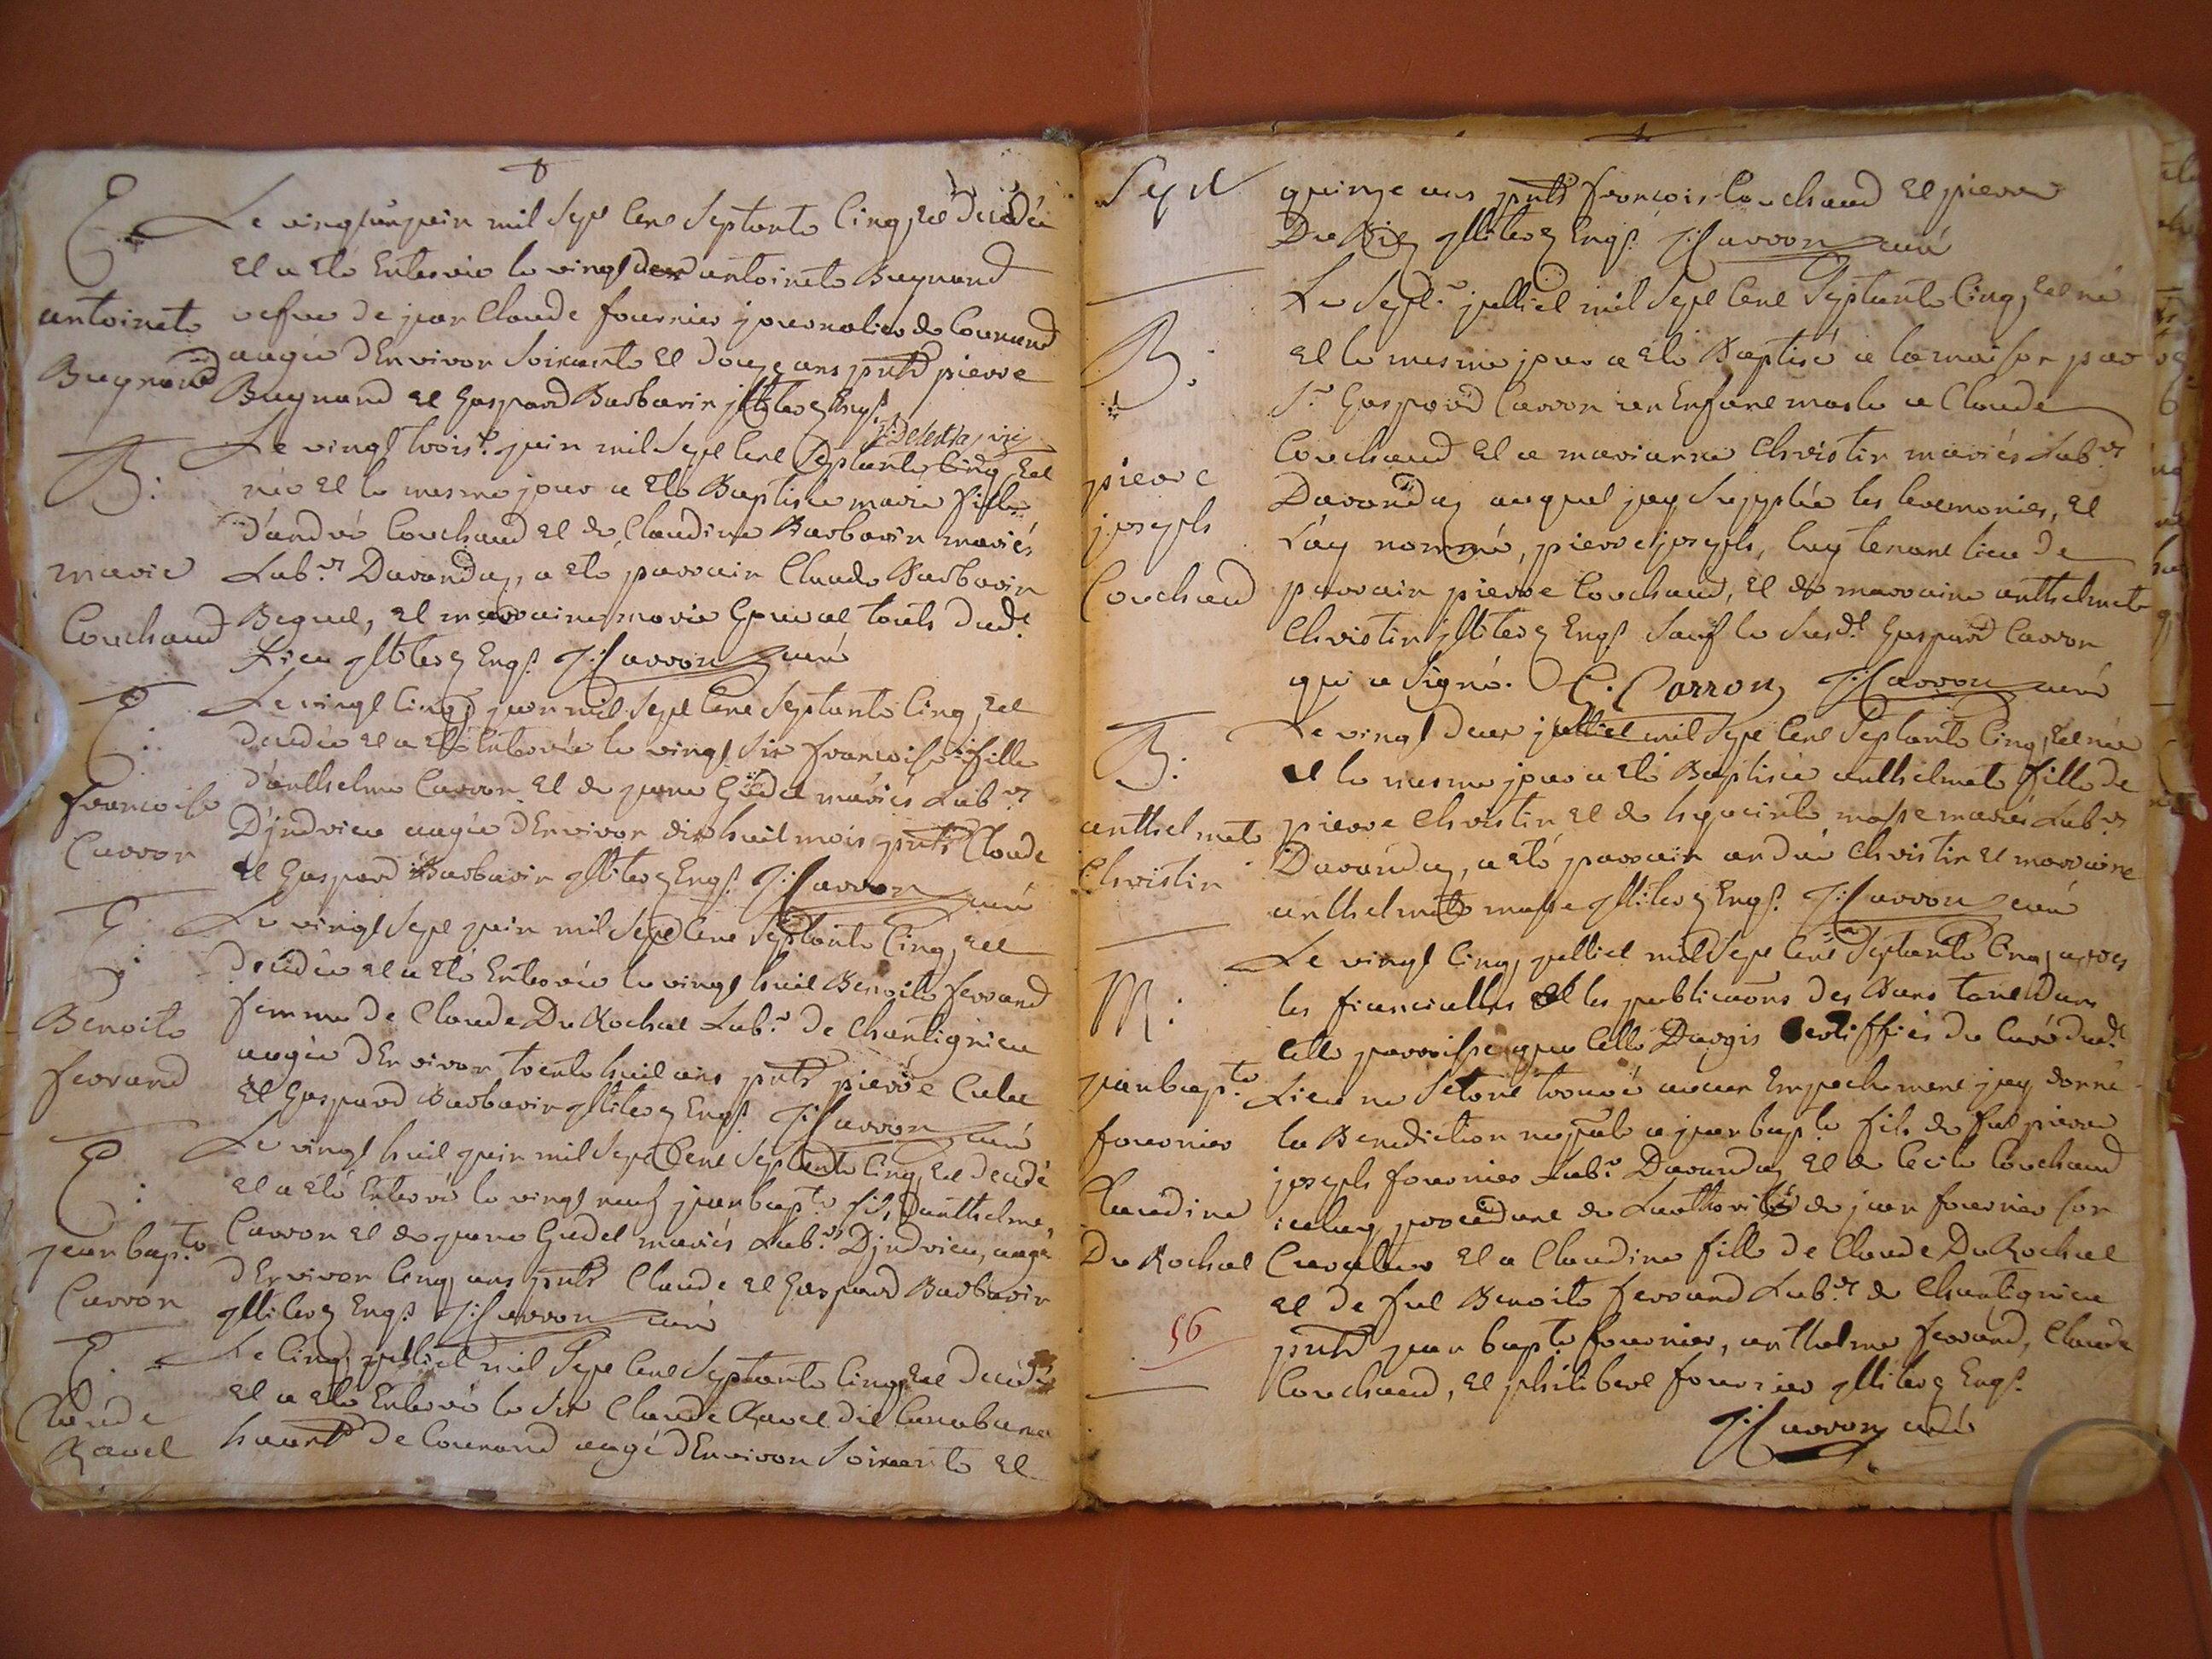 E.
antoinete
Bugnand
Le vingt un juin mil sept cent septante cinq, est decedée
et a eté enterrée le vingt deux antoinete Bugnand
vefue de jean Claude fournier journalier de Counand
augée d'Environ soixante et douze ans pnts pierre
Bugnand et Gaspard Barbarin illiterez Enqs
B:
marie
Couchaud
Le vingt trois.e juin mil sept cent septante cinq Est
née et le mesme jour a eté Baptisée marie fille
d'andré Couchaud et de Claudine Barbarin mariés
Lab.rs Darandaz, a eté parrain Claude Barbarin
Beguel, et marraine marie touts dud.t
Lieu illiterez Enqs. J: Carron curé
E:
francoise
Carron
Le vingt cinq juin mil sept cent septante cinq, est
decedée et a eté Enterrée le vingt six francoise fille
d'anthelme Carron et de jeane Gudel mariés Lab.rs
D'jndrieu augée d'Environ dix huit mois pnts Claude
et Gaspard Barbarin illiterez Enqs. J: Carron curé
E:
Benoite
ferrand
Le vingt sept juin mil sept cent septante cinq, est
decedée et a eté Enterrée le vingt huit Benoite ferrand
femme de Claude Du Rochat Lab.r de Chantignieu
augée d'Environ trente huit ans pnts pierre
et Gaspard Barbarin illiterez Enqs. J: Carron curé
E:
jean bapt.te
Carron
Le vingt huit juin mil sept cent septante cinq, est decedé
et a eté Enterré le vingt neuf jean bapt.te fils d'anthelme
Carron et de jeane Gudel mariés Lab.rs D'jndrieu, augé
d'Environ cinq ans pnts Claude et Gaspard Barbarin
illiterez Enqs. J: Carron curé
E.
Claude
Ravet
Le cinq julliet mil sept cent septante cinq est decedé
et a eté Enterré le six Claude Ravet dit
de Counand augé d'Environ soixante et
quinze ans pnts francois Couchaud et pierre
illiterez Enqs. J: Carron curé
B.
pierre
joseph
Couchaud
Le sept.e julliet mil sept cent septante cinq, est né
et le mesme jour a eté Baptisé a la maison par
S.r Gaspard Carron un Enfant masle a Claude
Couchaud et a marianne Christin mariés Lab.rs
Darandaz auquel jay supplée les ceremonies, et
L'ay nommé, pierre joseph, luy tenant lieu de
parrain pierre Couchaud, et de marraine anthelmete
Christin illiterez Enqs. sauf le susd.t Gaspard Carron
qui a signé. G. Carron J: Carron curé
B:
anthelmete
Christin
Le vingt deux julliet mil sept cent septante cinq, est née
et le mesme jour a eté Baptisée anthelmete fille de
pierre Christin et de hyacinte masse mariés Lab.rs
Darandaz, a eté parrain andré Christin et marraine
anthelmete masse illiterez Enqs. J: Carron curé
M:
jean bapt.te
fournier
Claudine
Du Rochat
56
Le vingt cinq julliet mil sept cent septante cinq, apres
les fiancialles et les publicaōns des Bans tant dans
cette parroisse que celle Dargis certiffiés du curé dud.t
Lieu ne s'etant trouvé aucun Empechement jay donné
la Benediction nupale a jean bapt.te fils de fut pierre
joseph fournier Lab.r Darandaz et de Cecile Couchaud
iceluy procedant de L'authorité de jean fournier son
Curateur et a Claudine fille de Claude Du Rochat
et de fut Benoite ferrand Lab.rs de Chantignieu
pnts jean bapt.te fournier, anthelme ferrand, Claude
Couchaud, et philibert fournier illiterez Enqs.
J: Carron curé